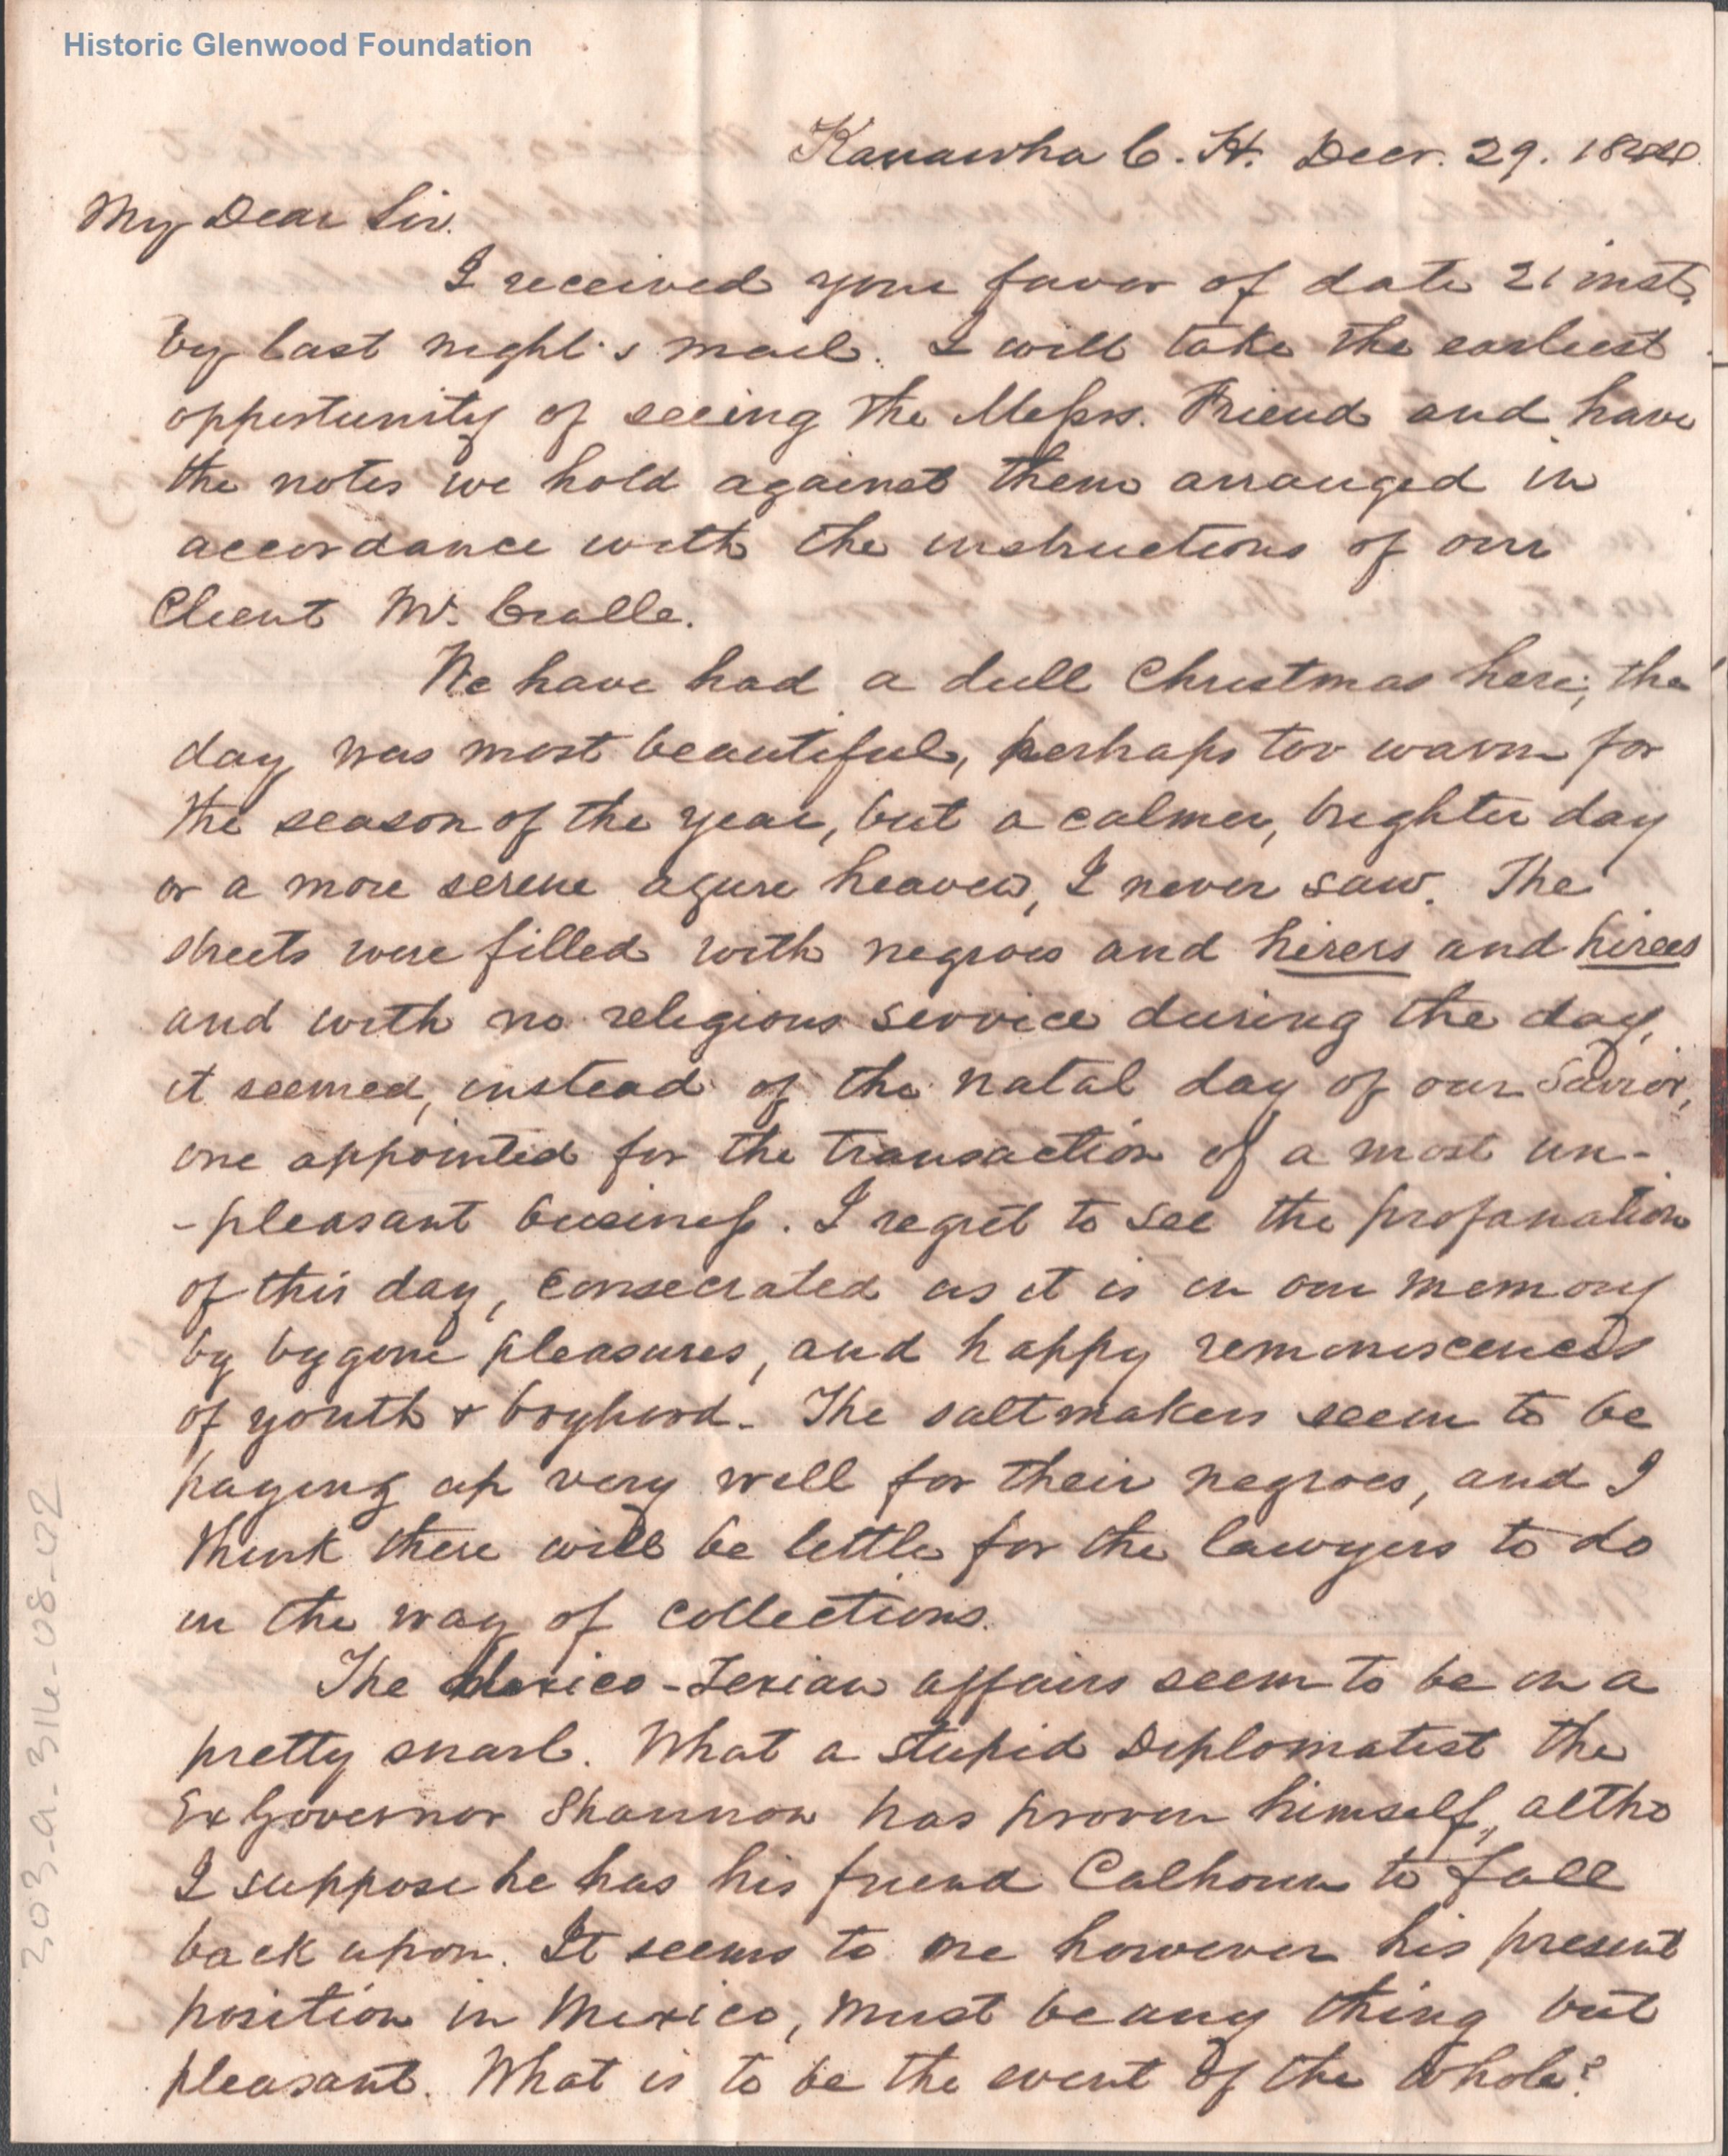 Historic Glenwood Foundation
Kanawha C. H. Decr. 29. 1844.
My Dear Sir.
I received your favor of date 21 inst,
by last night's mail. I will take the earliest
opportunity of seeing the Messrs. Friend and have
the notes we hold against them arranged in
accordance with the instructions of our
Client Mr. Cralle.
We have had a dull Christmas here; the
day was most beautiful, perhaps too warm for
the season of the year, but a calmer, brighter day
or a more serene azure heaven, I never saw. The
streets were filled with negroes and hirers and hirees
and with no religious service during the day,
it seemed, instead of the natal day of our Savior,
one appointed for the transaction of a most un-
-pleasant business. I regret to see the profanation
of this day, consecrated as it is in our memory
by bygone pleasures, and happy reminiscences
of youth & boyhood. The saltmakers seem to be
paying up very well for their negroes, and I
think there will be little for the lawyers to do
in the way of collections.
The Mexico-Texian affairs seem to be in a
pretty snarl. What a stupid Diplomatist the
Ex Governor Shannon has proven himself, altho
I suppose he has his friend Calhoun to fall
back upon. It seems to me however his present
position in Mexico, must be any thing but
pleasant. What is to be the event of the whole?
203-a-316-08-02